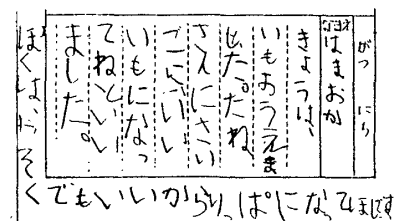 がつ にち
なまえ はまおか
きょうは、
いもおうえま
した。たね
さんにさい
ごにいい
いもになっ
てねといい
ました。
ぼくは、おそくでもいいからりっぱになってほしです